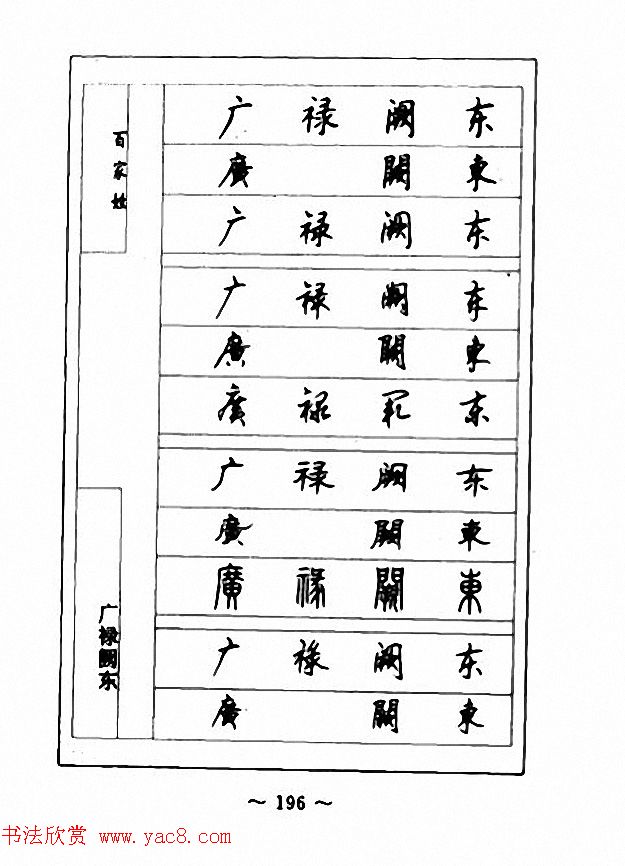 百家姓
广 禄 阙 东
廣 闕 東
广 禄 阙 东
广 禄 阙 东
廣 闕 東
廣 禄 阙 东
广 禄 阙 东
廣 闕 東
廣 禄 闕 東
广 禄 阙 东
廣 闕 東
广禄阙东
～ 196 ～
书法欣赏 www.yac8.com